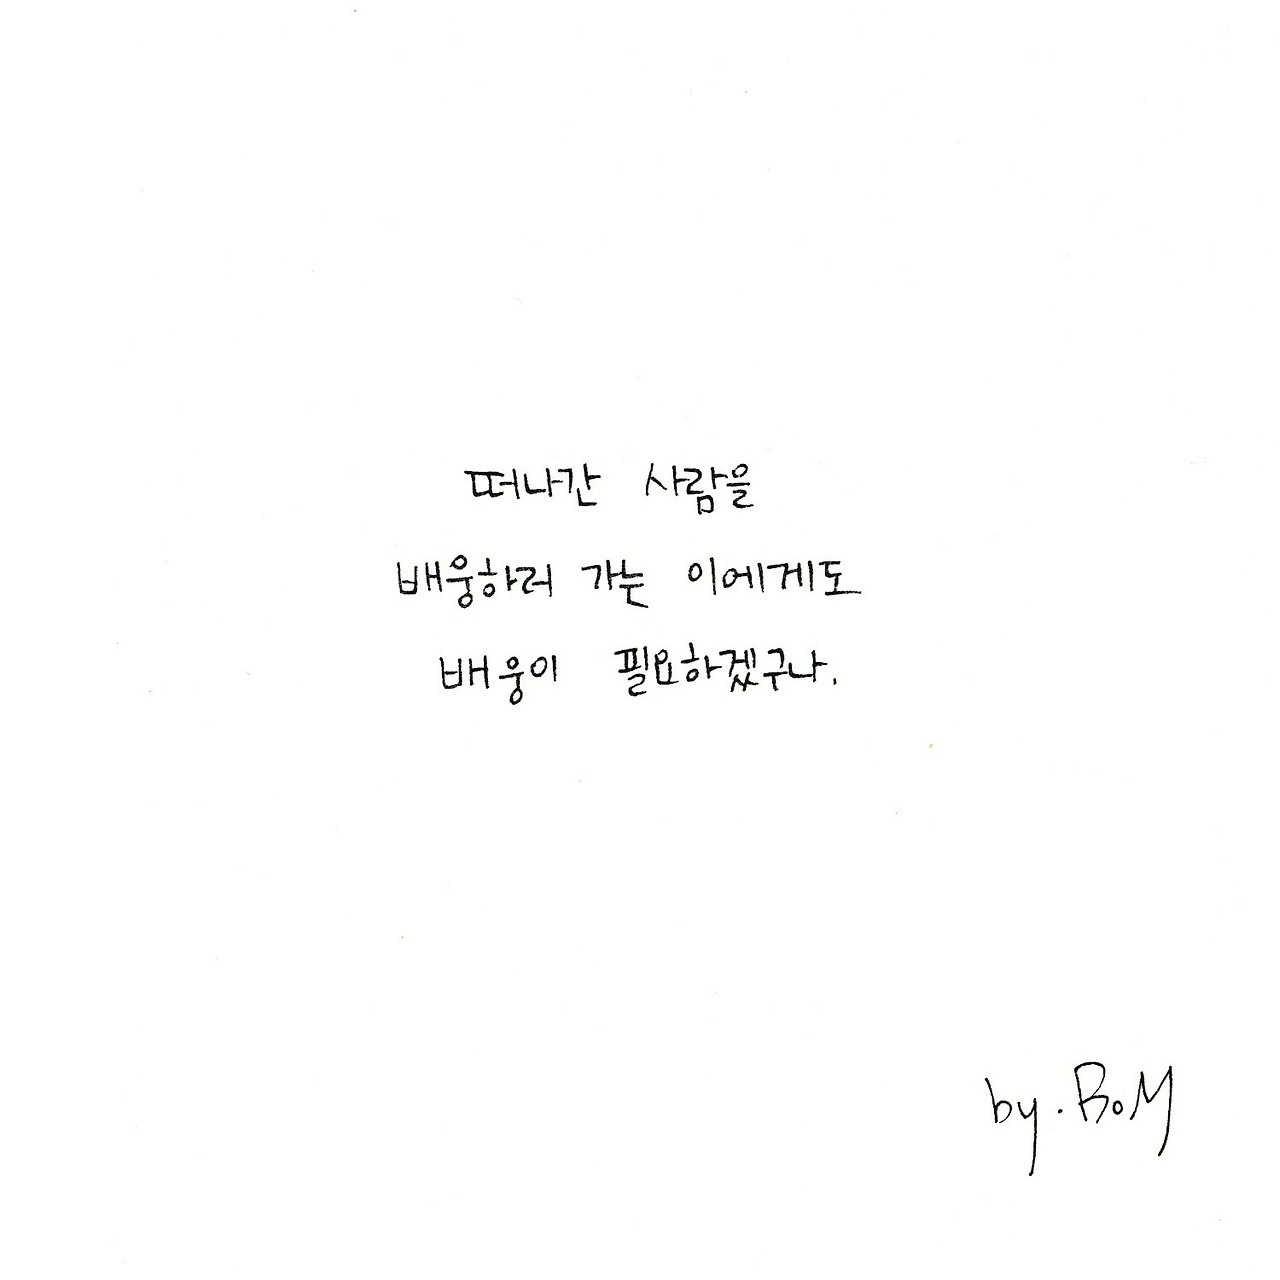 떠나간 사람을
배웅하러 가는 이에게도
배웅이 필요하겠구나.
by. BoM